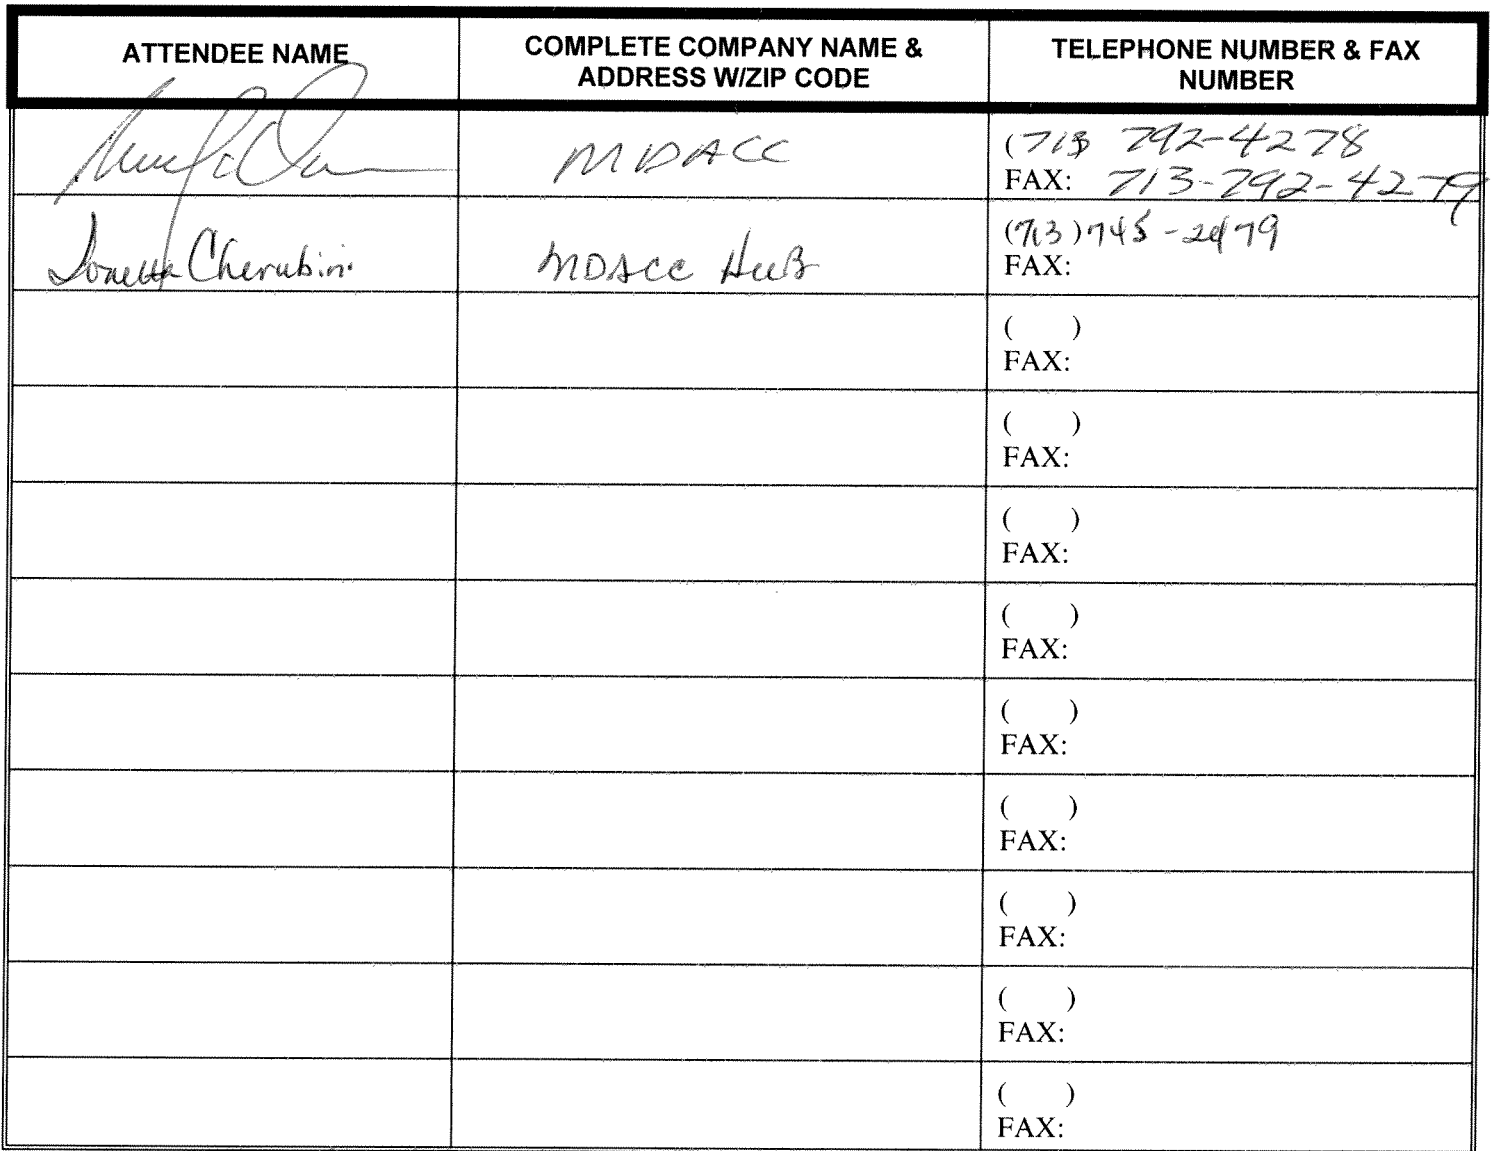 ATTENDEE NAME
COMPLETE COMPANY NAME &
ADDRESS W/ZIP CODE
TELEPHONE NUMBER & FAX
NUMBER
MDACC
(713 792-4278
FAX: 713-792-4279
Cherubini
MDACC HUB
(713) 745-2479
FAX:
( )
FAX:
( )
FAX:
( )
FAX:
( )
FAX:
( )
FAX:
( )
FAX:
( )
FAX:
( )
FAX:
( )
FAX: